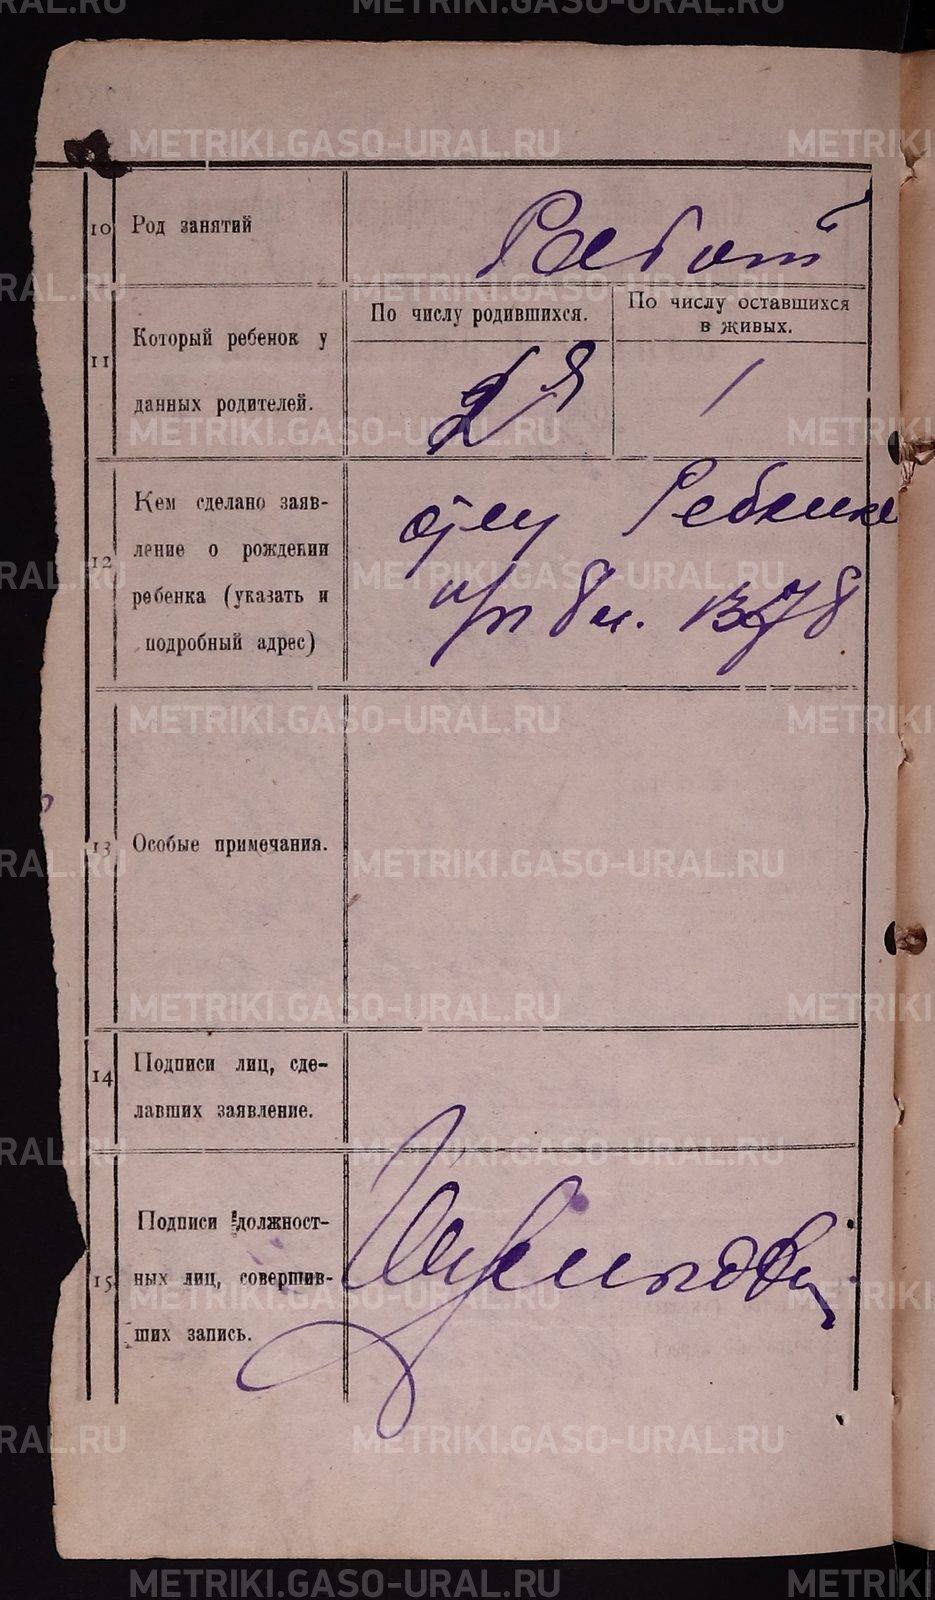 METRIKI.GASO-URAL.RU
10 Род занятий
Работ
11 Который ребенок у
данных родителей.
По числу родившихся.
По числу оставшихся
в живых.
2й
1
12 Кем сделано заяв-
ление о рождении
ребенка (указать и
подробный адрес)
отец Ребенка
13 Особые примечания.
14 Подписи лиц, сде-
лавших заявление.
15 Подписи должност-
ных лиц, совершив-
ших запись.
METRIKI.GASO-URAL.RU